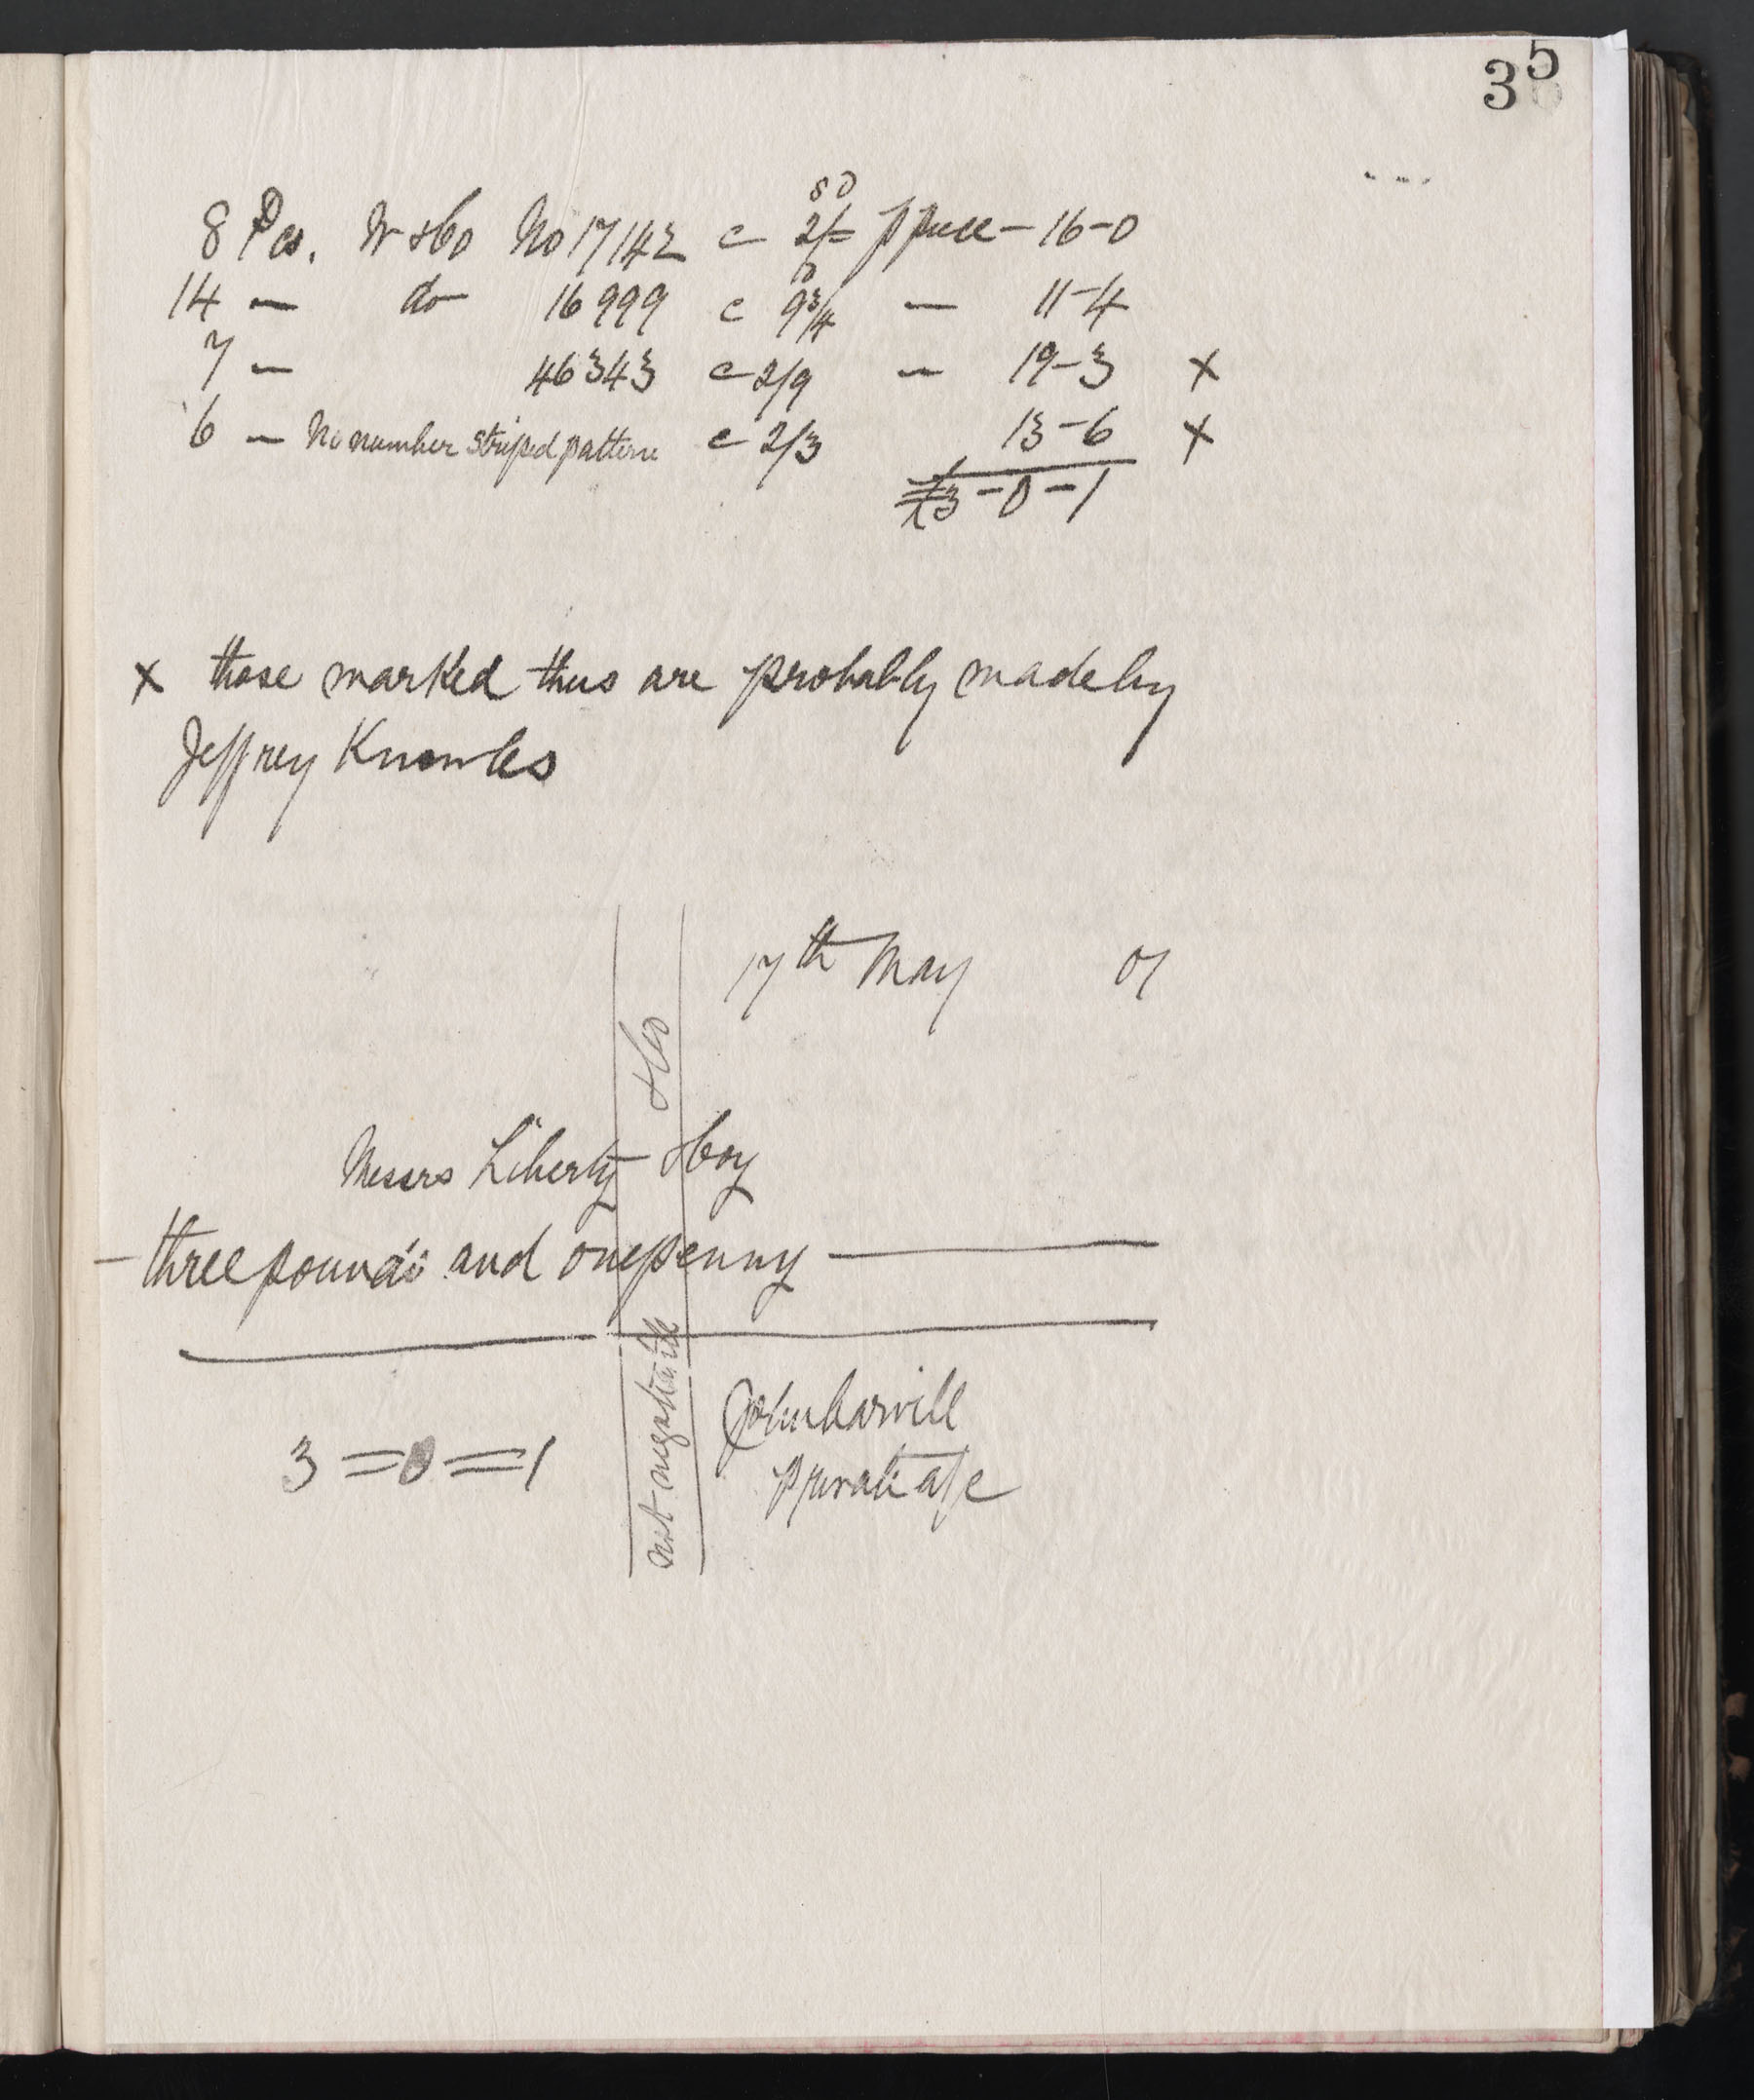 35
8 Pcs. W & Co No 17142 @ 2/= p piece - 16-0
S D
14 — do 16999 @ 9¾ — 11-4
D
7 — 46343 @ 2/9 — 19-3 x
6 — No number striped pattern @ 2/3 13-6 x
£3-0-1
x those marked thus are probably made by
Jeffrey Knowles
17th May 07
& Co
Messrs Liberty & Coy
- three pounds and one penny -
not negotiable
3=0=1
private a/c